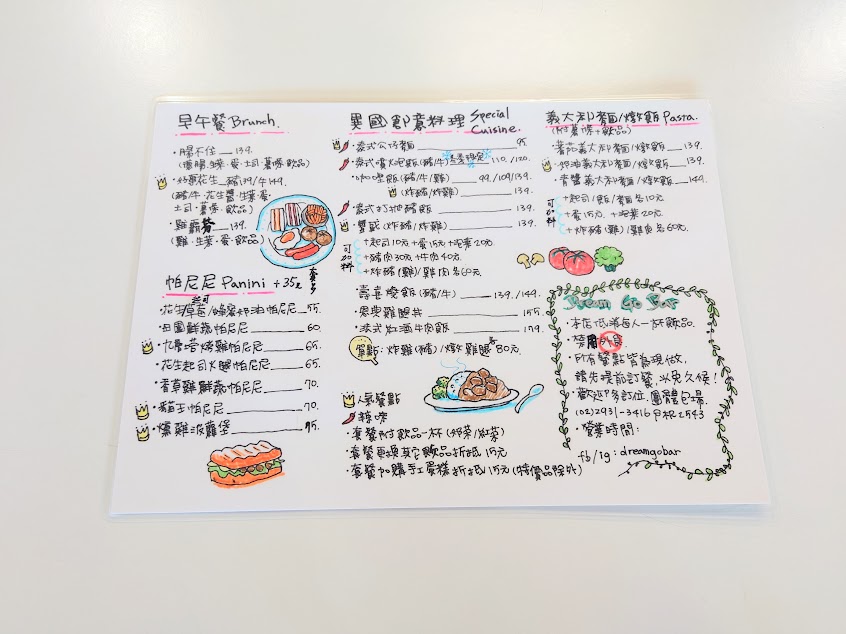 早午餐 Brunch
・腸不住 139.
(德腸.生菜.蛋.土司.薯條.飲品)
・好厲花生 豬139/牛149.
(豬/牛.花生醬.生菜.蛋.
土司.薯條.飲品)
・雞霸芬 139.
(雞.生菜.蛋.飲品)
帕尼尼 Panini +35元
套多
・花生/草莓/蜂蜜奶油帕尼尼 55.
・田園鮮蔬帕尼尼 60.
・九層塔燒雞帕尼尼 65.
・花生起司火腿帕尼尼 65.
・香草雞鮮蔬帕尼尼 70.
・貓王帕尼尼 70.
・爆雞菠蘿堡 75.
異國創意料理 Special
Cuisine.
・泰式公仔麵 95.
・泰式嘴火吧飯(豬/牛) 110./120.
・咖哩飯(豬/牛/雞) 99./109/139.
(炸豬/炸雞) 139.
・泰式打拋豬飯 139.
・雙感(炸豬/炸雞) 139.
可加料
+起司10元 +蛋15元 +泡菜20元.
+豬肉30元 +牛肉40元.
+炸豬(雞)/雞肉各60元.
・壽喜燒飯(豬/牛) 139./149.
・雞腿丼 155.
・法式紅酒牛肉飯 179.
單點: 炸雞(豬)/燉雞腿各80元.
人氣餐點
辣味
・套餐附飲品一杯(奶茶/紅茶)
・套餐更換其它飲品折抵15元
・套餐加購手工蛋糕折抵15元(特價品除外)
義大利麵/燉飯 Pasta.
(附薯條+飲品)
・蕃茄義大利麵/燉飯 139.
・奶油義大利麵/燉飯 139.
・青醬義大利麵/燉飯 149.
可加料
+起司/飯/麵各10元
+蛋15元 +泡菜20元.
+炸豬(雞)/雞肉各60元.
Dream Go Bar
・本店低消每人一杯飲品.
・禁用外食
・所有餐點皆為現做,
請先提前訂餐,以免久候!
・歡迎30多部位.團體包場.
(02)2931-3416 P.2543
・營業時間:
fb/ig: dreamgobar